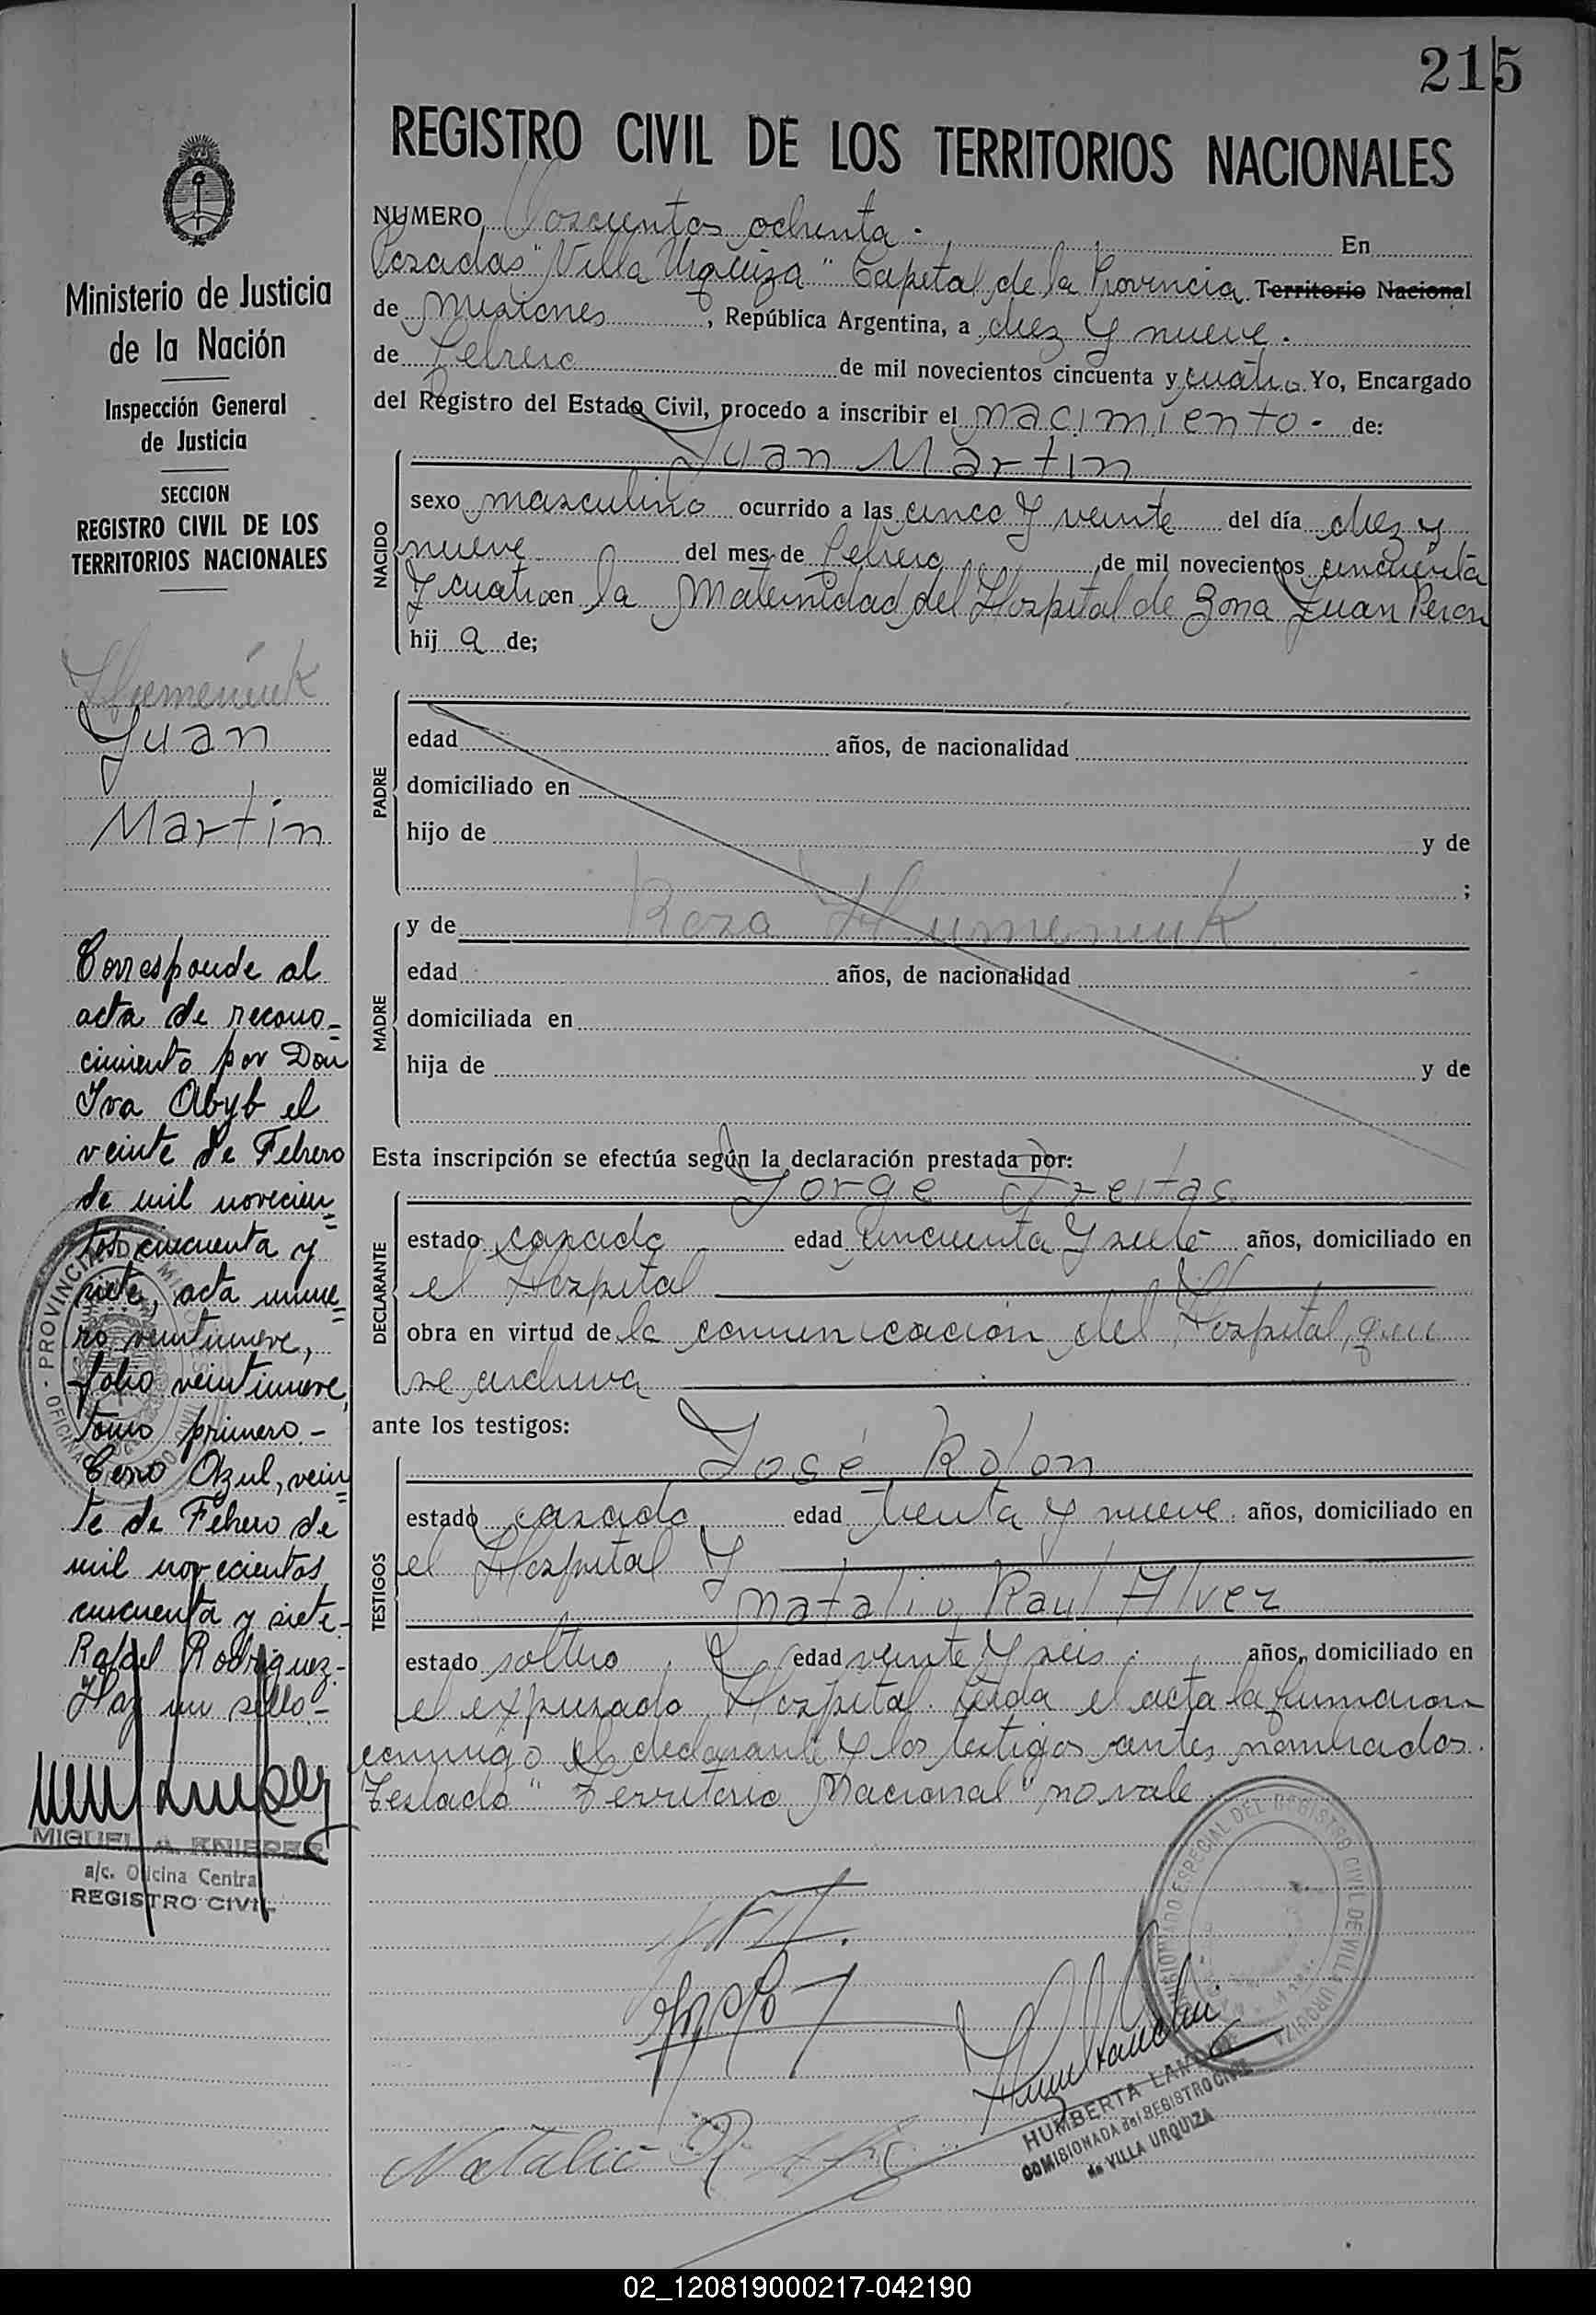 215
REGISTRO CIVIL DE LOS TERRITORIOS NACIONALES
Ministerio de Justicia
de la Nación
Inspección General
de Justicia
SECCION
REGISTRO CIVIL DE LOS
TERRITORIOS NACIONALES
Humeniuk
Juan
Martin
Corresponde al
acta de recono-
cimiento por Don
Iva Abyb el
veinte de Febrero
de mil novecien=
tos cincuenta y
siete, acta núme=
ro veintinueve,
folio veintinueve,
tomo primero.-
Cerro Azul, vein=
te de Febrero de
mil novecientos
cincuenta y siete.-
Rafael Rodriguez.-
Hay un sello.-
MIGUEL A. KNIEPER
a/c. Oficina Central
REGISTRO CIVIL
NUMERO Doscientos ochenta. En
Posadas "Villa Urquiza" Capital de la Provincia Territorio Nacional
de Misiones, República Argentina, a diez y nueve.
de Febrero de mil novecientos cincuenta y cuatro Yo, Encargado
del Registro del Estado Civil, procedo a inscribir el nacimiento- de:
Juan Martin
NACIDO
sexo masculino ocurrido a las cinco y veinte del día diez y
nueve del mes de Febrero de mil novecientos cincuenta
y cuatro en la Maternidad del Hospital de Zona Juan Peron
hij o de;
PADRE
edad años, de nacionalidad
domiciliado en
hijo de y de
;
MADRE
y de Rosa Humeniuk
edad años, de nacionalidad
domiciliada en
hija de y de
Esta inscripción se efectúa según la declaración prestada por:
DECLARANTE
Jorge Freitas
estado casado edad cincuenta y siete años, domiciliado en
el Hospital
obra en virtud de la comunicacion del Hospital, que
se archiva
ante los testigos:
TESTIGOS
José Rolon
estado casado, edad treinta y nueve años, domiciliado en
el Hospital y
Natalio Raul Alvez
estado soltero edad veinte y seis años, domiciliado en
el expresado Hospital. Leida el acta la firmaron
conmigo el declarante y los testigos antes nombrados.
Testado "Territorio Nacional" no vale
COMISIONADO ESPECIAL DEL REGISTRO CIVIL DE VILLA URQUIZA
Natalio R.
HUMBERTA
COMISIONADA del REGISTRO CIVIL
de VILLA URQUIZA
02_120819000217-042190